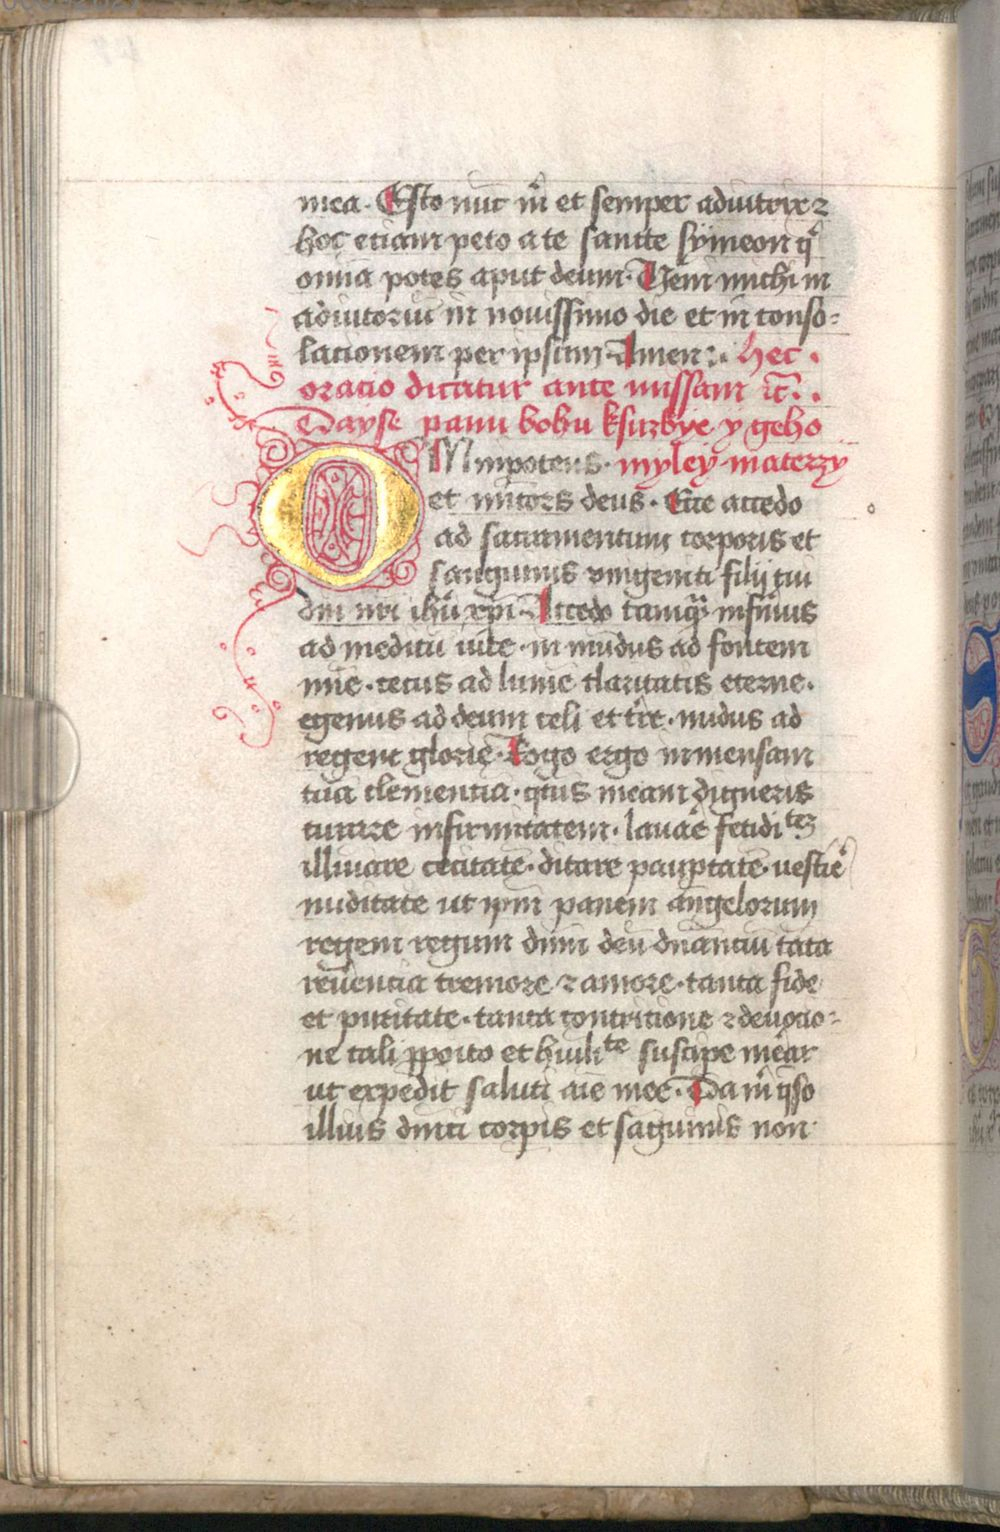 mea. Esto nūc m̄ et semper adiutrix ⁊
hoc etiam peto a te sancte sÿmeon q̄
omīa potes aput deum. Vem michi in
adiutoriū in novissimo die et in conso-
lacionem per ipsum. Amen. hec.
oracio dicatur ante missam ꝛc̄.
Dayse panu bohu kſluzbye y geho
mÿleÿ materzy
OMnipotens.
et mīcors deus. Ecce accedo
ad sacramentum corporis et
sanguinis vnigeniti filij tui
dn̄i nr̄i ihū xp̄i. Accedo tamq̄ infirmus
ad medicū vite. in mūdus ad fontem
mīe. cecus ad lumē claritatis eterne.
egenus ad deum celi et tr̄e. nudus ad
regem glorie. Rogo ergo inmensam
tuā clemenciā. q̄tus meam digneris
curare infirmitatem. lavar̄e fetiditez
illuīare cecitatē. ditare paup̄tatē. vestir̄e
nuditatē ut ip̄m panem angelorum
regem regum dūm deū dn̄anciū tāta
reūencia tremore ⁊ amore. tanta fide
et puritate. tanta contricione ⁊ deuocio-
ne tali ꝓpoīto et hūiliᵗᵉ suscipe mēar
ut expedit saluti aīe mee. Da m̄ q̄so
illius dn̄ici corp̄is et sāguinis non